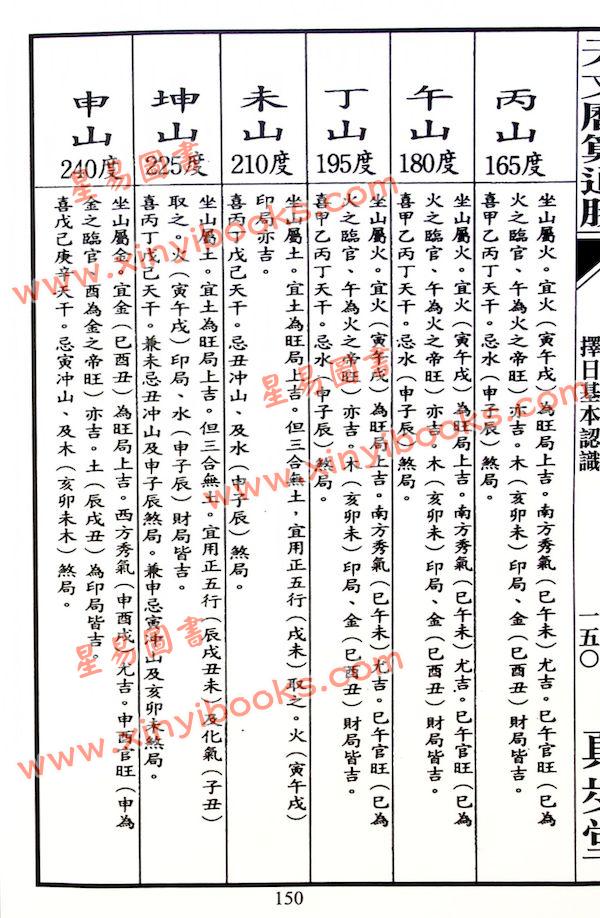 天文曆算通勝
擇日基本認識
一五〇
真步堂
丙山
165度
坐山屬火。宜火(寅午戌)為旺局上吉。南方秀氣(巳午未)尤吉。巳午官旺(巳為
火之臨官、午為火之帝旺)亦吉。木(亥卯未)印局、金(巳酉丑)財局皆吉。
喜甲乙丙丁天干。忌水(申子辰)煞局。
午山
180度
坐山屬火。宜火(寅午戌)為旺局上吉。南方秀氣(巳午未)尤吉。巳午官旺(巳為
火之臨官、午為火之帝旺)亦吉。木(亥卯未)印局、金(巳酉丑)財局皆吉。
喜甲乙丙丁天干。忌水(申子辰)煞局。
丁山
195度
坐山屬火。宜火(寅午戌)為旺局上吉。南方秀氣(巳午未)尤吉。巳午官旺(巳為
火之臨官、午為火之帝旺)亦吉。木(亥卯未)印局、金(巳酉丑)財局皆吉。
喜甲乙丙丁天干。忌水(申子辰)煞局。
未山
210度
坐山屬土。宜土為旺局上吉。但三合無土,宜用正五行(戌未)取之。火(寅午戌)
印局亦吉。
喜丙丁戊己天干。忌丑冲山、及水(申子辰)煞局。
坤山
225度
坐山屬土。宜土為旺局上吉。但三合無土。宜用正五行(辰戌丑未)及化氣(子丑)
取之。火(寅午戌)印局、水(申子辰)財局皆吉。
喜丙丁戊己天干。兼未忌丑冲山及申子辰煞局。兼申忌寅冲山及亥卯未煞局。
申山
240度
坐山屬金。宜金(巳酉丑)為旺局上吉。西方秀氣(申酉戌)尤吉。申酉官旺(申為
金之臨官、酉為金之帝旺)亦吉。土(辰戌丑)為印局皆吉。
喜戊己庚辛天干。忌寅冲山、及木(亥卯未木)煞局。
150
星易圖書
www.xinyibooks.com
星易圖書
www.xinyibooks.com
星易圖書
www.xinyibooks.com